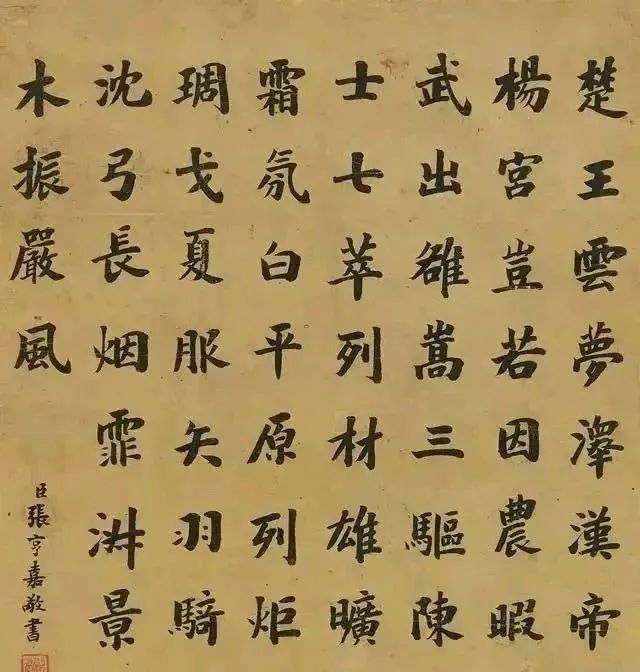 楚王雲夢澤漢帝
楊宮豈若因農暇
武出雒嵩三驅陳
士七萃列材雄曠
霜氛白平原列炬
琱戈夏服矢羽騎
沈弓長烟霏景
木振嚴風
臣張亨嘉敬書